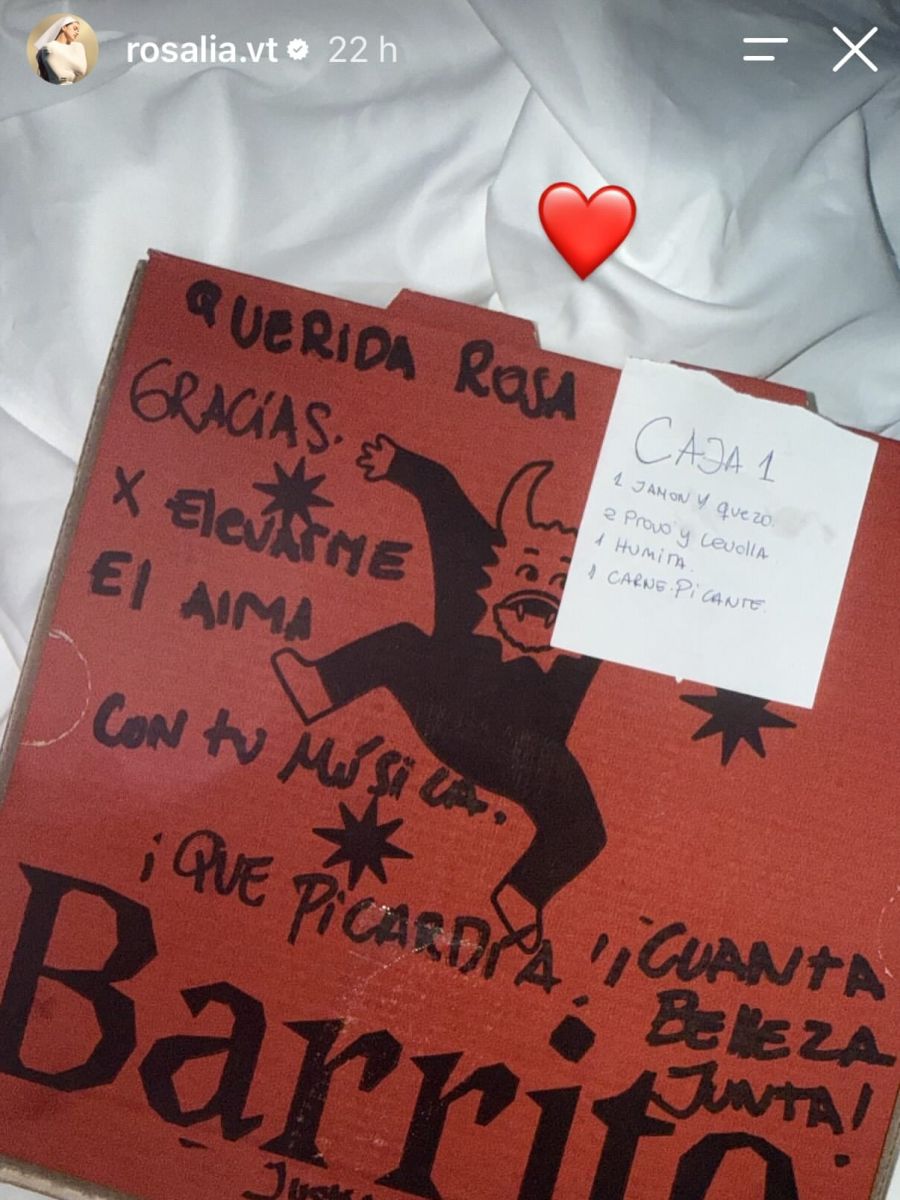 rosalia.vt 22 h
QUERIDA ROSA
GRACIAS.
X ElevARME
El AlMA
CON tu MúSiCA.
¡QUE PiCARDíA! ¡CUANtA
BElleZA
JUNTA!
CAJA 1
1 JAMON Y QUEZO.
2 PROVO Y CEVOLLA
1 HUMITA.
1 CARNE PiCANTE.
Barrito